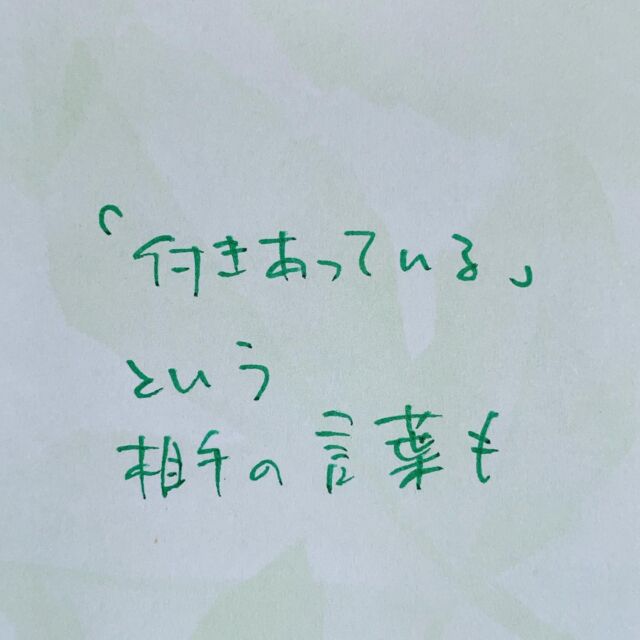 「付きあっている」
という
相手の言葉も